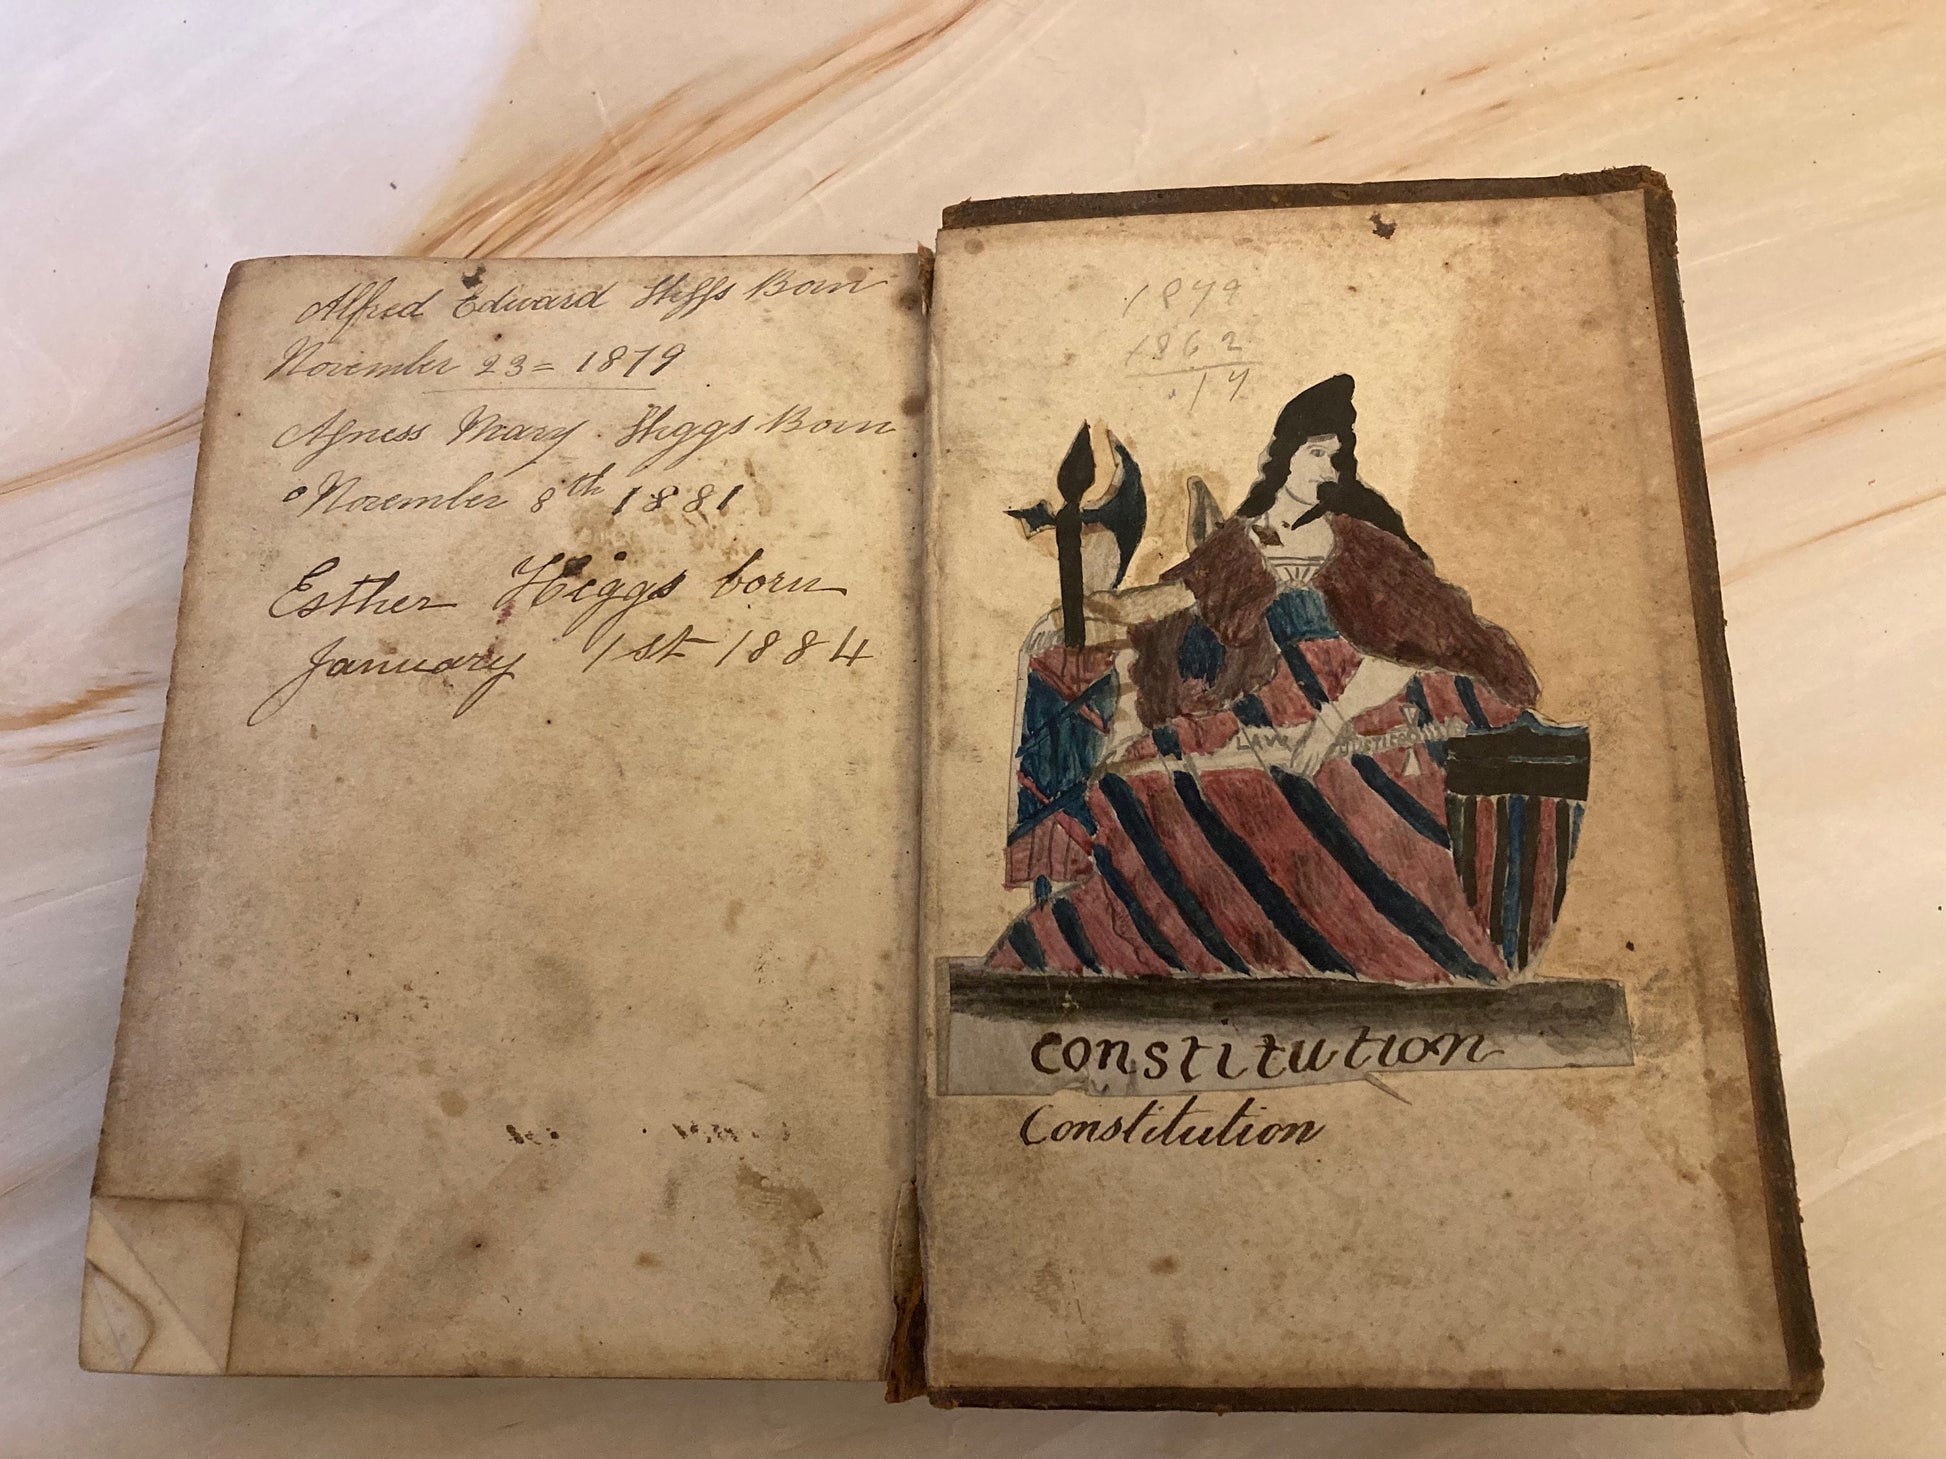 Alfred Edward Higgs Born
November 23= 1879
Agness Mary Higgs Born
November 8th 1881
Esther Higgs born
January 1st 1884
1879
1862
.17
LAW
constitution
Constitution